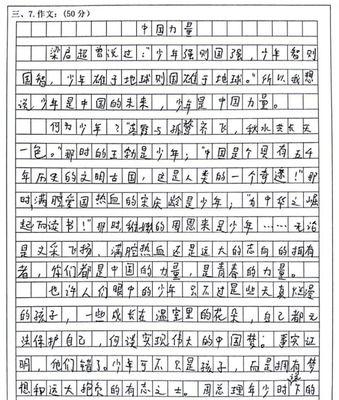 三、7.作文：(50分)
中国力量
梁启超曾说过："少年强则国强，少年智则
国智，少年雄于地球则国雄于地球。"所以我想
说，少年是中国的未来，少年是中国力量。
何为少年？"落霞与孤鹜齐飞，秋水共长天
一色。"那时的王勃是少年；"中国是个具有五千
年历史的文明古国，这是人类的一个奇迹！"那
时，满腔爱国热血的宋庆龄是少年；"为中华之崛
起而读书！"那时，稚嫩的周恩来是少年……无论
是文采飞扬、满腔热血还是远大的志向的拥有
者，你们都是中国的力量，是青春的力量。
也许人们眼中的少年只不过是些天真烂漫
的孩子，一些成长在温室里的花朵，自己都无
法保护自己，何谈实现伟大的中国梦；事实证
明，他们错了。少年可不只是孩子，而是拥有梦
想和远大抱负的有志之士。周总理年少时说下的